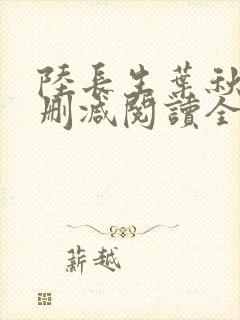 陸長生葉秋
刪減閱讀全
薪越